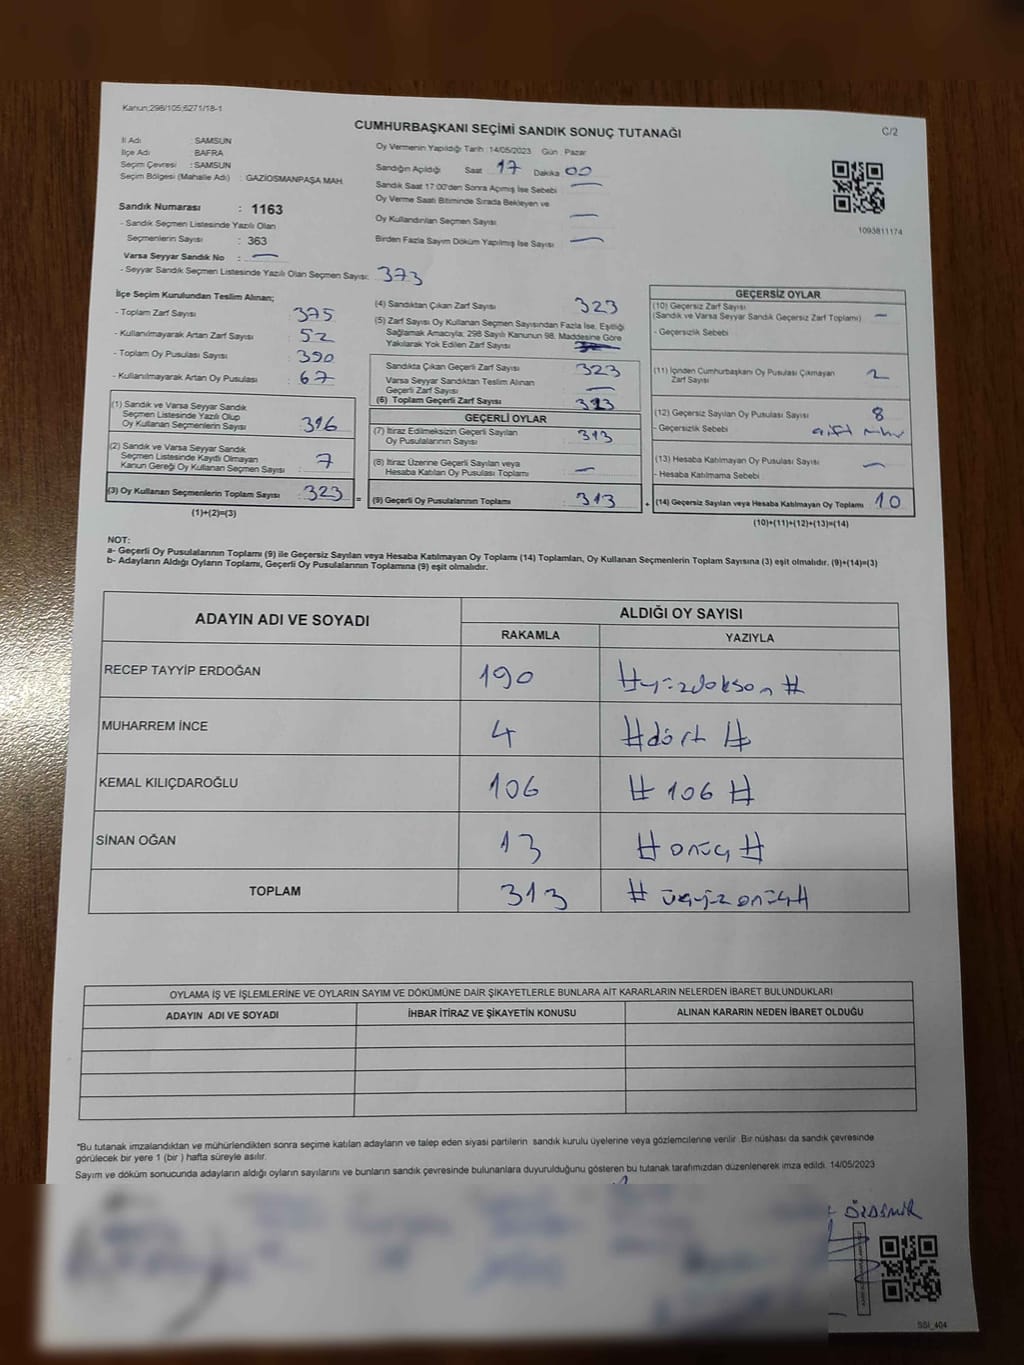 Kanun;298/105,6271/18-1
C/2
CUMHURBAŞKANI SEÇİMİ SANDIK SONUÇ TUTANAĞI
İl Adı : SAMSUN
İlçe Adı : BAFRA
Seçim Çevresi : SAMSUN
Seçim Bölgesi (Mahalle Adı) : GAZİOSMANPAŞA MAH.
Sandık Numarası : 1163
- Sandık Seçmen Listesinde Yazılı Olan
Seçmenlerin Sayısı : 363
Varsa Seyyar Sandık No : —
- Seyyar Sandık Seçmen Listesinde Yazılı Olan Seçmen Sayısı: 373
Oy Vermenin Yapıldığı Tarih :14/05/2023 Gün : Pazar
Sandığın Açıldığı Saat : 17 Dakika : 00
Sandık Saat 17:00'den Sonra Açımış İse Sebebi : —
Oy Verme Saati Bitiminde Sırada Bekleyen ve
Oy Kullandırılan Seçmen Sayısı : —
Birden Fazla Sayım Döküm Yapılmış İse Sayısı : —
1093811174
İlçe Seçim Kurulundan Teslim Alınan;
- Toplam Zarf Sayısı : 375
- Kullanılmayarak Artan Zarf Sayısı : 52
- Toplam Oy Pusulası Sayısı : 390
- Kullanılmayarak Artan Oy Pusulası : 67
(1) Sandık ve Varsa Seyyar Sandık
Seçmen Listesinde Yazılı Olup
Oy Kullanan Seçmenlerin Sayısı : 316
(2) Sandık ve Varsa Seyyar Sandık
Seçmen Listesinde Kayıtlı Olmayan
Kanun Gereği Oy Kullanan Seçmen Sayısı : 7
(3) Oy Kullanan Seçmenlerin Toplam Sayısı : 323
(1)+(2)=(3)
(4) Sandıktan Çıkan Zarf Sayısı : 323
(5) Zarf Sayısı Oy Kullanan Seçmen Sayısından Fazla İse, Eşitliği
Sağlamak Amacıyla; 298 Sayılı Kanunun 98. Maddesine Göre
Yakılarak Yok Edilen Zarf Sayısı :
Sandıkta Çıkan Geçerli Zarf Sayısı : 323
Varsa Seyyar Sandıktan Teslim Alınan
Geçerli Zarf Sayısı : —
(6) Toplam Geçerli Zarf Sayısı :
GEÇERLİ OYLAR
(7) İtiraz Edilmeksizin Geçerli Sayılan
Oy Pusulalarının Sayısı : 313
(8) İtiraz Üzerine Geçerli Sayılan veya
Hesaba Katılan Oy Pusulası Toplamı : —
= (9) Geçerli Oy Pusulalarının Toplamı : 313
GEÇERSİZ OYLAR
(10) Geçersiz Zarf Sayısı :
(Sandık ve Varsa Seyyar Sandık Geçersiz Zarf Toplamı) —
- Geçersizlik Sebebi :
(11) İçinden Cumhurbaşkanı Oy Pusulası Çıkmayan
Zarf Sayısı : 2
(12) Geçersiz Sayılan Oy Pusulası Sayısı : 8
- Geçersizlik Sebebi : çift
(13) Hesaba Katılmayan Oy Pusulası Sayısı : —
- Hesaba Katılmama Sebebi :
+ (14) Geçersiz Sayılan veya Hesaba Katılmayan Oy Toplamı : 10
(10)+(11)+(12)+(13)=(14)
NOT:
a- Geçerli Oy Pusulalarının Toplamı (9) ile Geçersiz Sayılan veya Hesaba Katılmayan Oy Toplamı (14) Toplamları, Oy Kullanan Seçmenlerin Toplam Sayısına (3) eşit olmalıdır. (9)+(14)=(3)
b- Adayların Aldığı Oyların Toplamı, Geçerli Oy Pusulalarının Toplamına (9) eşit olmalıdır.
ADAYIN ADI VE SOYADI
ALDIĞI OY SAYISI
RAKAMLA YAZIYLA
RECEP TAYYİP ERDOĞAN 190 #yüzdokson#
MUHARREM İNCE 4 #dört#
KEMAL KILIÇDAROĞLU 106 #106#
SİNAN OĞAN 13 #onüç#
TOPLAM 313 #üçyüzonüç#
OYLAMA İŞ VE İŞLEMLERİNE VE OYLARIN SAYIM VE DÖKÜMÜNE DAİR ŞİKAYETLERLE BUNLARA AİT KARARLARIN NELERDEN İBARET BULUNDUKLARI
ADAYIN ADI VE SOYADI İHBAR İTİRAZ VE ŞİKAYETİN KONUSU ALINAN KARARIN NEDEN İBARET OLDUĞU
*Bu tutanak imzalandıktan ve mühürlendikten sonra seçime katılan adayların ve talep eden siyasi partilerin sandık kurulu üyelerine veya gözlemcilerine verilir. Bir nüshası da sandık çevresinde
görülecek bir yere 1 (bir ) hafta süreyle asılır.
Sayım ve döküm sonucunda adayların aldığı oyların sayılarını ve bunların sandık çevresinde bulunanlara duyurulduğunu gösteren bu tutanak tarafımızdan düzenlenerek imza edildi. 14/05/2023
ÖZDEMİR
SSI_404